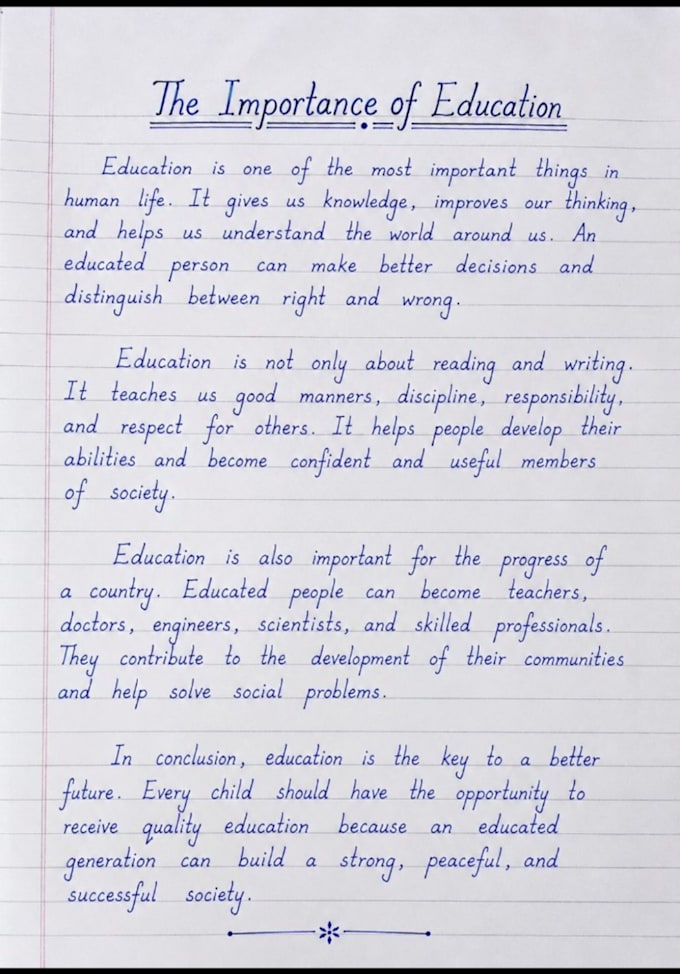 The Importance of Education
Education is one of the most important things in
human life. It gives us knowledge, improves our thinking,
and helps us understand the world around us. An
educated person can make better decisions and
distinguish between right and wrong.
Education is not only about reading and writing.
It teaches us good manners, discipline, responsibility,
and respect for others. It helps people develop their
abilities and become confident and useful members
of society.
Education is also important for the progress of
a country. Educated people can become teachers,
doctors, engineers, scientists, and skilled professionals.
They contribute to the development of their communities
and help solve social problems.
In conclusion, education is the key to a better
future. Every child should have the opportunity to
receive quality education because an educated
generation can build a strong, peaceful, and
successful society.